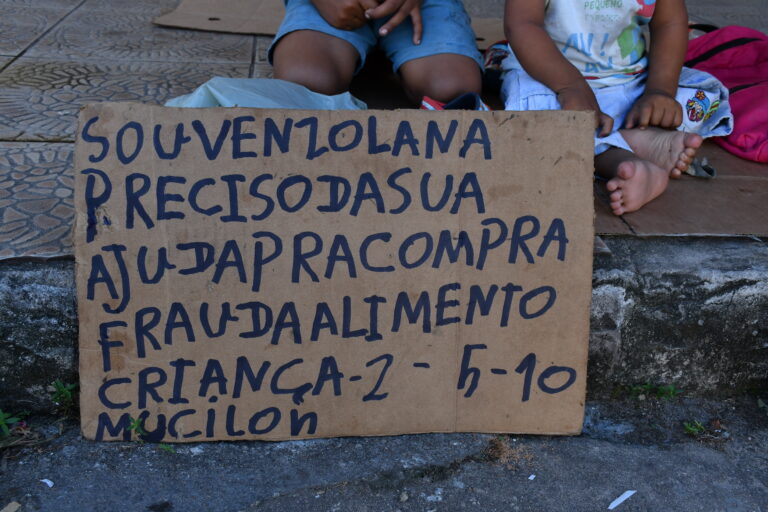 PEQUENO
AV!
SOU VENZOLANA
PRECISO DA SUA
AJUDA PRA COMPRA
FRAUDA ALIMENTO
CRIANÇA-2-5-10
MUCILON